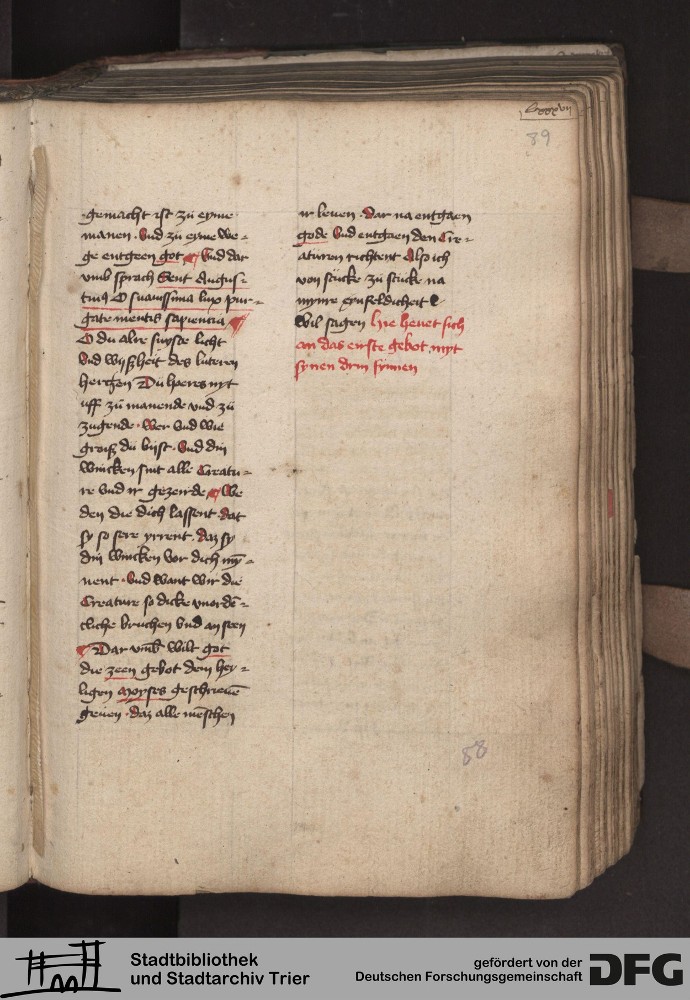 lxxxvij
89
gemacht ist zü eyme
manen. Vnd zü eyme we-
ge entgeen got Vnd dar
vmb sprach Sent Augus-
tinus O suauissima lux pur-
gate mentis sapiencia
O du alre suyste licht
Vnd wyßheit des luteren
hertzen Du hoeres nyt
uff zü manende vnd zü
zugende. wer vnd wie
groiß du bijst. Vnd din
wincken sint alle Creatu-
re vnd ir gezeirde We
den die dich lassent. dat
sy so sere yrrent. daz sy
din wincken vor dich mÿ-
nent. Vnd want wir die
Creature so dicke vnordē-
tliche bruchen vnd an seen
Dar vmb wilt got
die zeen gebot dem hey-
ligen Moyses geschrieuē
geuen. daz alle mēschen
ir leuen. dar na entgaen
gode Vnd entgaen den Cre-
aturen richtent Als ich
von stücke zü stücke na
mynre eynfeldicheit
wil sagen Hie heuet sich
an das eirste gebot myt
synen drin sinnen
88
Stadtbibliothek
und Stadtarchiv Trier
gefördert von der
Deutschen Forschungsgemeinschaft
DFG